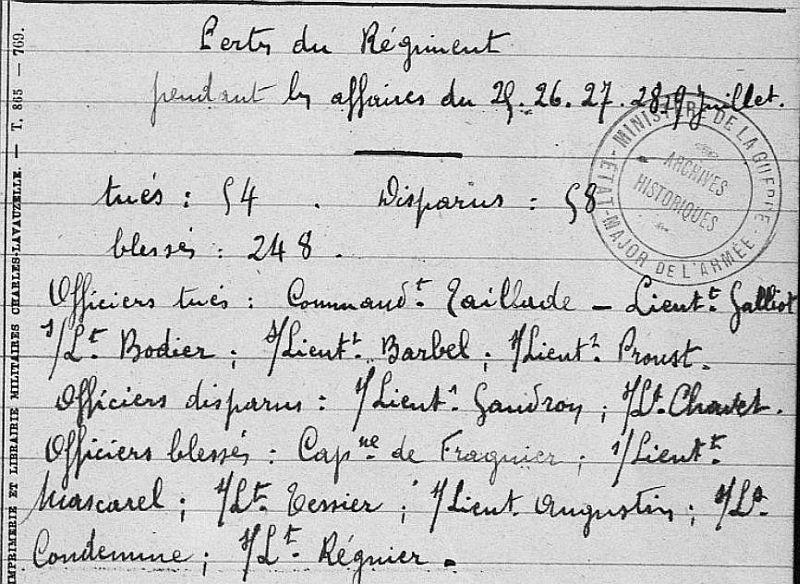 Pertes du Régiment
pendant les affaires du 25. 26. 27. 28. 29 juillet.
tués : 54 . Disparus : 58
blessés : 248 .
Officiers tués : Command^t. Taillade – Lieut^t. Galliot
S/L^t. Bodier ; S/Lieut^t. Barbel ; S/Lieut^t. Proust.
Officiers disparus : S/Lieut^t. Gaudron ; S/L^t. Chavet.
Officiers blessés : Cap^ne de Fraguier ; S/Lieut^t.
Mascarel ; S/L^t. Tessier ; S/Lieut. Augustin ; S/L^t.
Condemine ; S/L^t. Régnier .
MINISTÈRE DE LA GUERRE
ÉTAT-MAJOR DE L'ARMÉE
ARCHIVES
HISTORIQUES
IMPRIMERIE ET LIBRAIRIE MILITAIRES CHARLES-LAVAUZELLE. — T. 865 — 769.